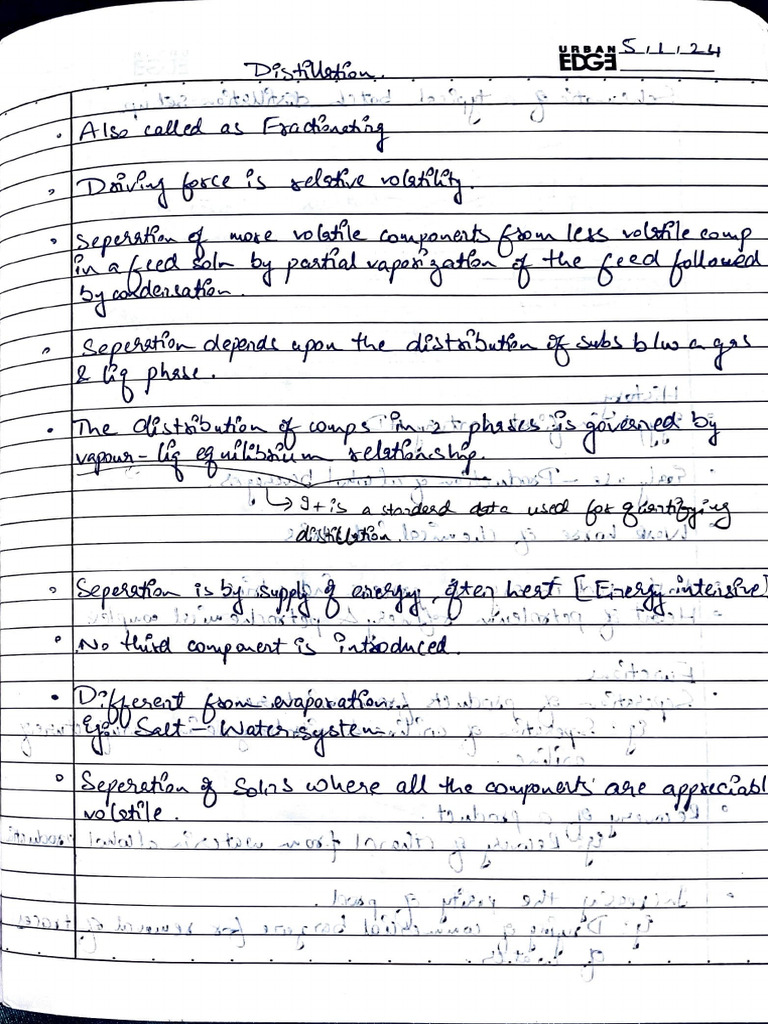 URBAN EDGE 5.1.24
Distillation.
Also called as Fractionating
Driving force is relative volatility.
Seperation of more volatile components from less volatile comp
in a feed soln by partial vaporization of the feed followed
by condensation.
Seperation depends upon the distribution of subs b/w a gas
& liq phase.
The distribution of comps in 2 phases is governed by
vapour-liq equilibrium relationship.
↳ It is a standard data used for quantifying
distillation.
Seperation is by supply of energy, often heat [Energy intensive]
No third component is introduced.
Different from evaporation.
Eg: Salt - Water system
Seperation of Solns where all the components are appreciabl
volatile.